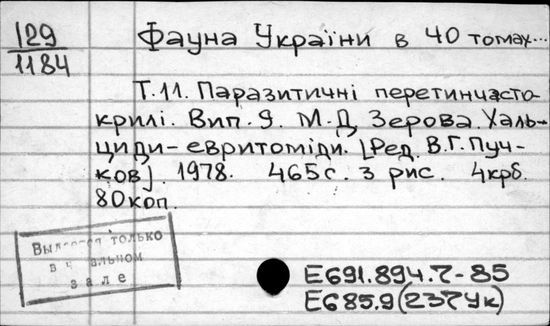 129
1184
Фауна України в 40 томах...
Т.11. Паразитичні перетинчасто-
крилі. Вип. 9. М.Д Зерова. Халь-
циди-евритоміди. [Ред. В.Г. Пуч-
ков]. 1978. 465с. з рис. 4крб.
80коп.
только
в
зале
Е691.894.7-85
Е685.9(237Ук)